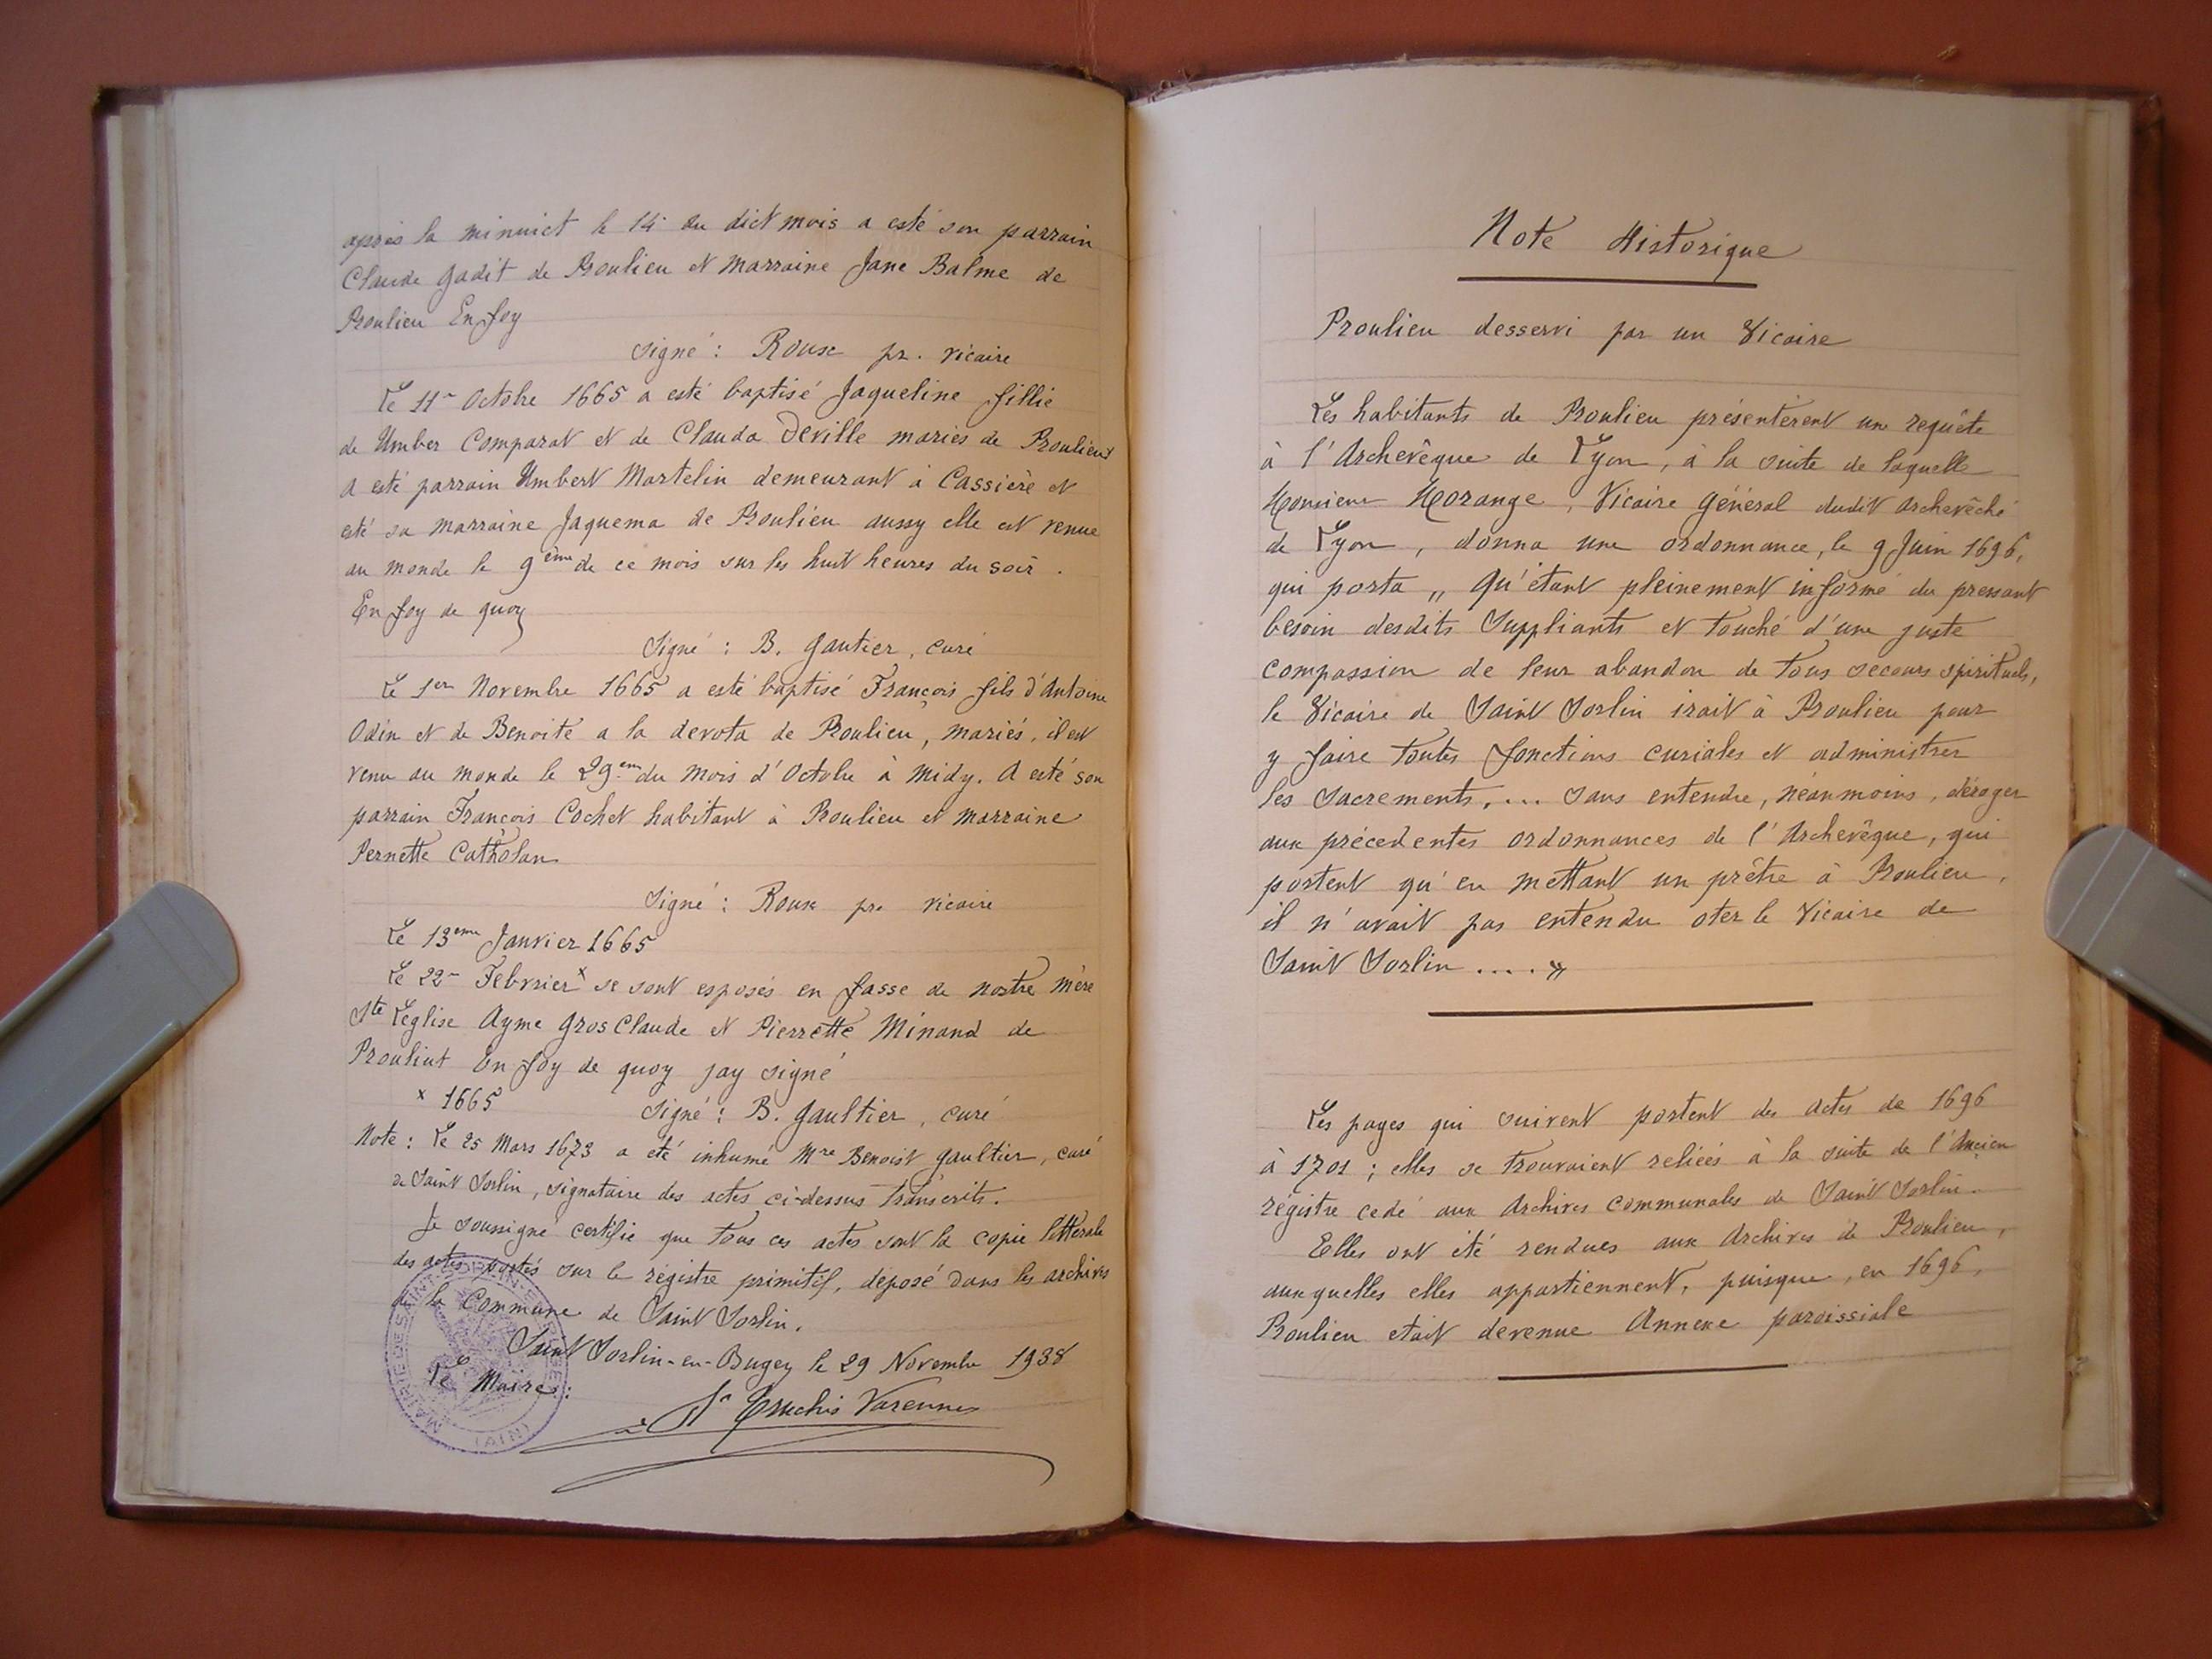 après la minuict le 14 du dict mois a esté son parrain
Claude Gadit de Proulieu et marraine Jane Balme de
Proulieu En foy
Signé : Roux pr. vicaire
Le 11e Octobre 1665 a esté baptisé Jaqueline fillie
de Umber Comparat et de Clauda Deville mariés de Proulieu
a esté parrain Umbert Martelin demeurant à Cassière et
esté sa marraine Jaquema de Proulieu aussy elle est venue
au monde le 9ème de ce mois sur les huit heures du soir.
En foy de quoy
Signé : B. Gautier, curé
Le 1er Novembre 1665 a esté baptisé François fils d'Antoine
Odin et de Benoite a la devota de Proulieu, mariés, il est
venu au monde le 29em du mois d'Octobre à midy. A esté son
parrain François Cochet habitant à Proulieu et marraine
Pernette Catholan
Signé : Roux pre vicaire
Le 13ème Janvier 1665
Le 22e Febvrier x se sont esposés en fasse de nostre mère
Ste Leglise Ayme Gros Claude et Pierrette Minand de
Prouliut En foy de quoy jay signé
x 1665 Signé : B. Gaultier, curé
Note : Le 25 Mars 1673 a été inhumé Mre Benoist Gaultier, curé
de Saint Sorlin, signataire des actes ci-dessus transcrits.
Je soussigné certifie que tous ces actes sont la copie littérale
des actes portés sur le régistre primitif, déposé dans les archives
de la Commune de Saint Sorlin.
Saint Sorlin-en-Bugey le 29 Novembre 1938
Le Maire :
Truchis Varennes
MAIRIE DE SAINT-SORLIN-EN-BUGEY (AIN)
Note Historique
Proulieu desservi par un Vicaire
Les habitants de Proulieu présentèrent une requête
à l'Archevêque de Lyon, à la suite de laquelle
Monsieur Morange, Vicaire Général dudit archevêché
de Lyon, donna une ordonnance, le 9 Juin 1696,
qui porta „ Qu'étant pleinement informé du pressant
besoin desdits Suppliants et touché d'une juste
compassion de leur abandon de tous secours spirituels,
le Vicaire de Saint Sorlin irait à Proulieu pour
y faire toutes fonctions curiales et administrer
les Sacrements, ... sans entendre, néanmoins, déroger
aux précedentes ordonnances de l'Archevêque, qui
portent qu'en mettant un prêtre à Proulieu,
il n'avait pas entendu oter le Vicaire de
Saint Sorlin .... »
Les pages qui suivent portent des actes de 1696
à 1701 ; elles se trouvaient reliées à la suite de l'Ancien
régistre cedé aux Archives communales de Saint Sorlin.
Elles ont été rendues aux Archives de Proulieu,
auxquelles elles appartiennent, puisque, en 1696,
Proulieu etait devenue Annexe paroissiale